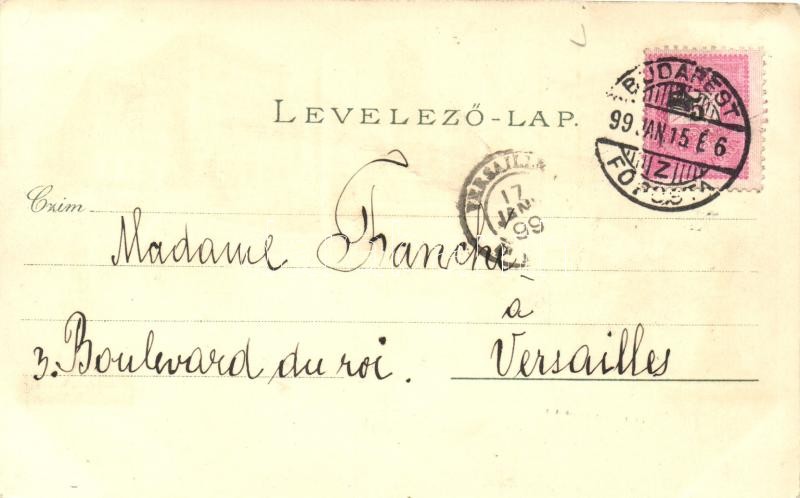 BUDAPEST
99 JAN 15 É 6
Z
FŐPOSTA
LEVELEZŐ-LAP.
VERSAILLES
17
JANV
99
Czim
Madame Franché
à
3. Boulevard du roi. Versailles